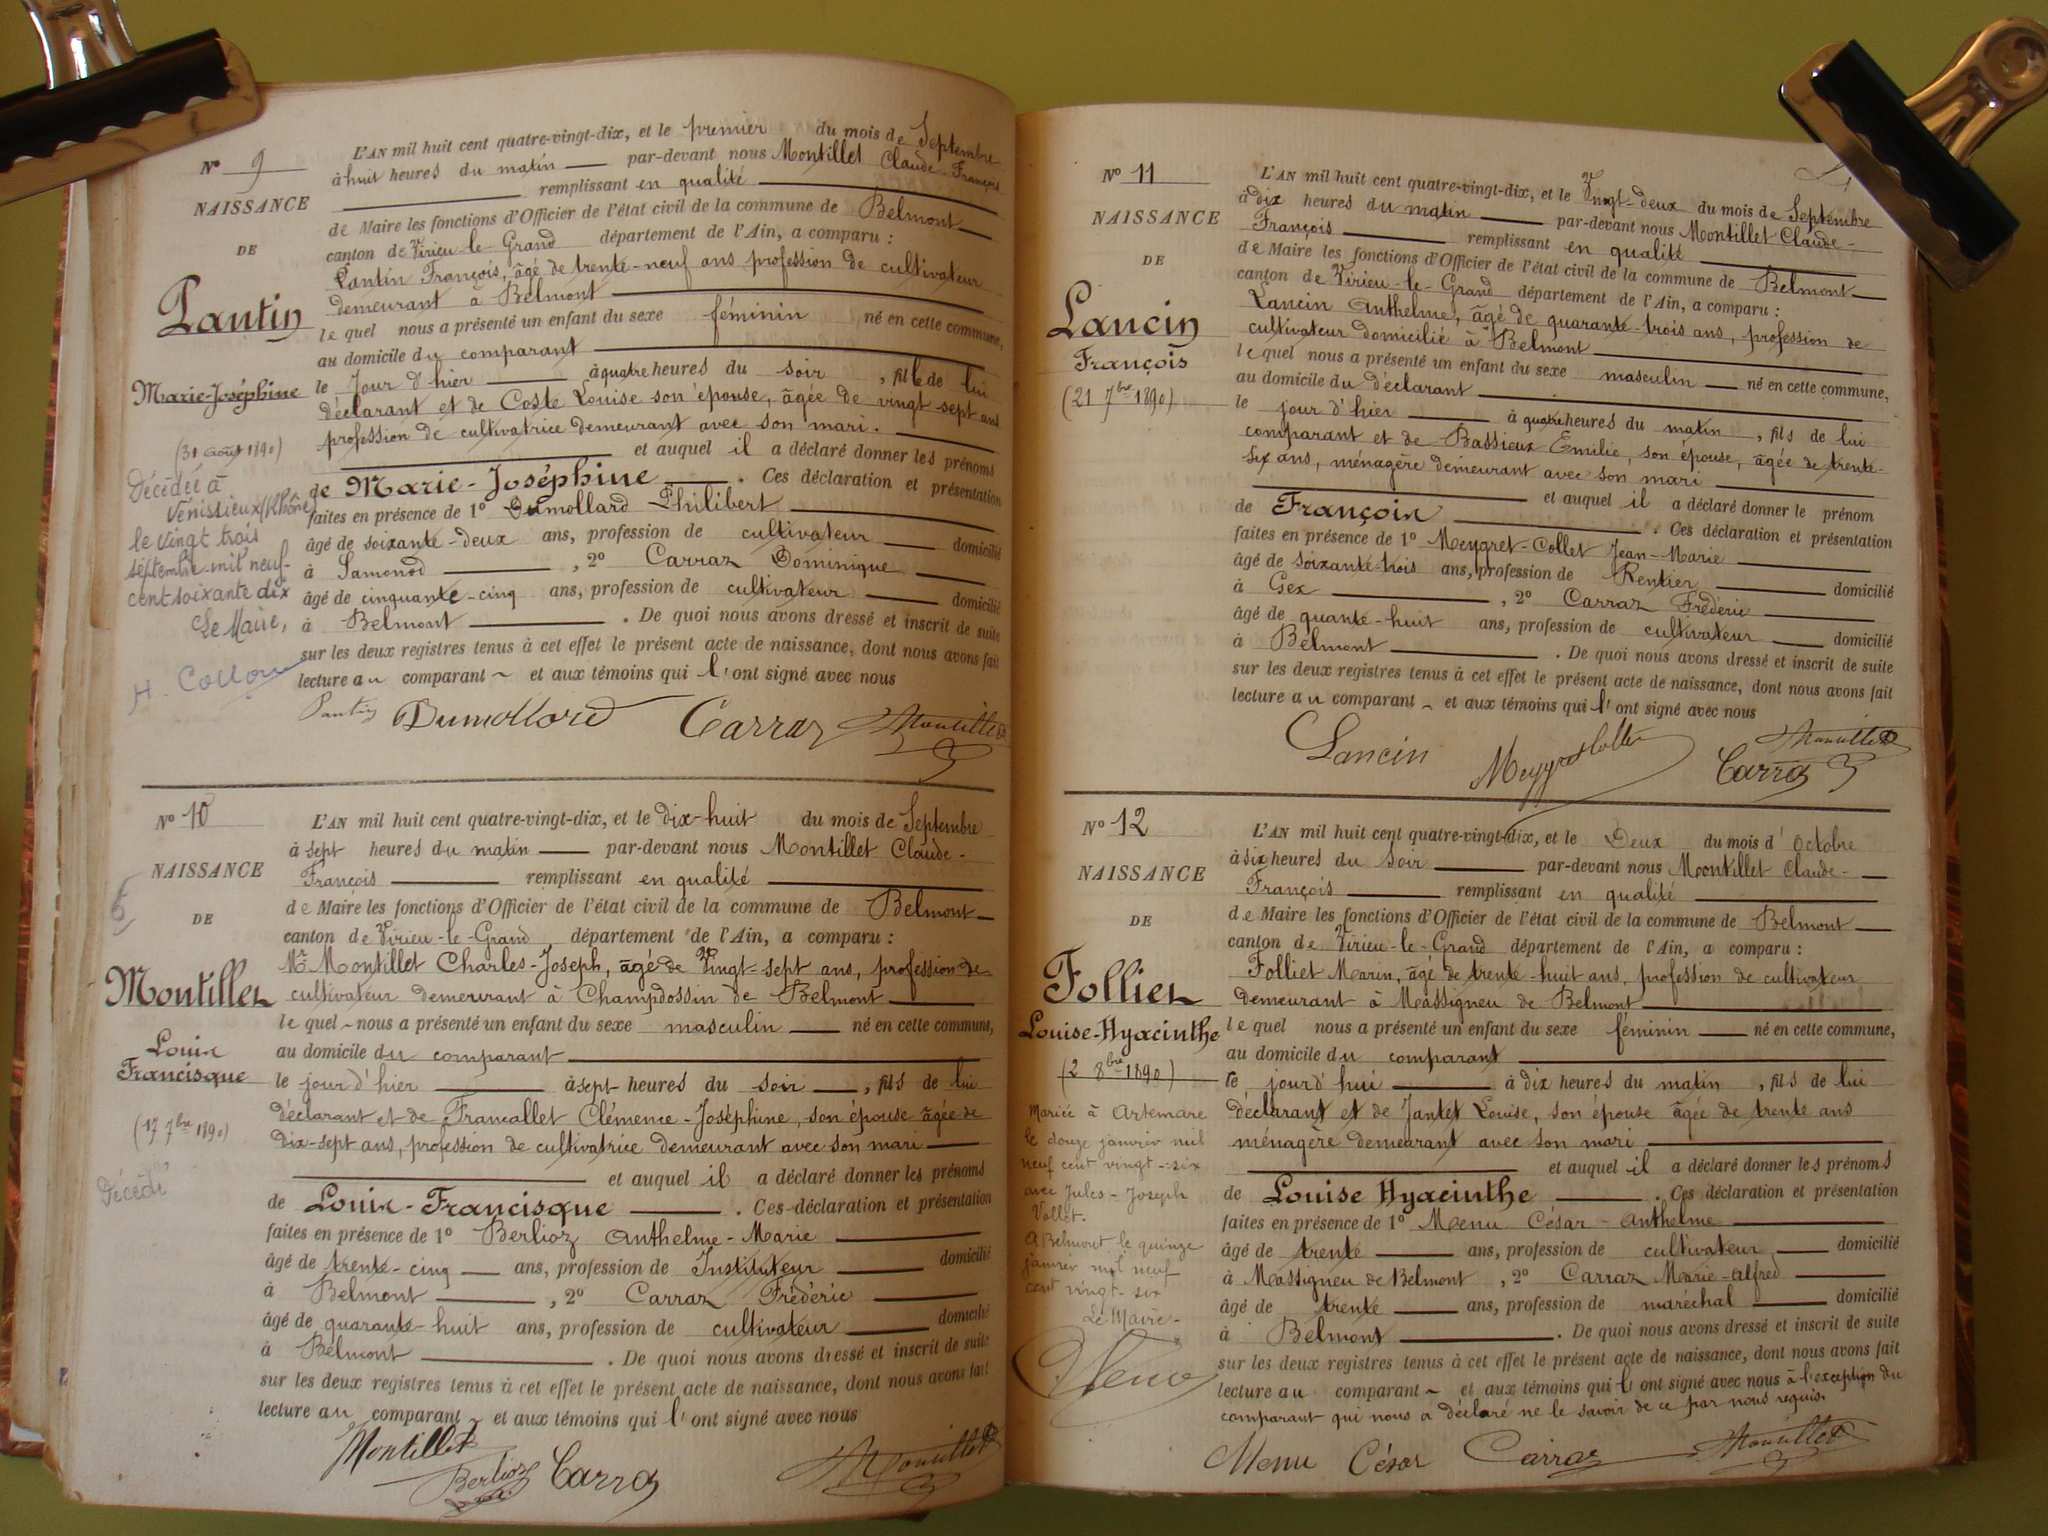 N° 9
NAISSANCE
DE
Pantin
Marie-Joséphine
(31 août 1890)
Décédée à
Vénissieux (Rhône)
le vingt trois
septembre mil neuf
cent soixante dix
Le Maire,
L'AN mil huit cent quatre-vingt-dix, et le premier du mois de Septembre
à huit heures du matin par-devant nous Montillet Claude-François
remplissant en qualité
de Maire les fonctions d'Officier de l'état civil de la commune de Belmont
canton de Virieu-le-Grand département de l'Ain, a comparu :
Pantin François, âgé de trente-neuf ans profession de cultivateur
demeurant à Belmont
lequel nous a présenté un enfant du sexe féminin né en cette commune,
au domicile du comparant
le jour d'hier à quatre heures du soir, fille de lui
déclarant et de Coste Louise son épouse, âgée de vingt-sept ans
profession de cultivatrice demeurant avec son mari.
et auquel il a déclaré donner les prénoms
de Marie-Joséphine. Ces déclaration et présentation
faites en présence de 1° Dumollard Philibert
âgé de soixante-deux ans, profession de cultivateur domicilié
à Samonod, 2° Carraz Dominique
âgé de cinquante-cinq ans, profession de cultivateur domicilié
à Belmont. De quoi nous avons dressé et inscrit de suite
sur les deux registres tenus à cet effet le présent acte de naissance, dont nous avons fait
lecture au comparant et aux témoins qui l'ont signé avec nous
Pantin Dumollard Carraz Montillet
N° 10
NAISSANCE
DE
Montillet
Louis
Francisque
(17 7bre 1890)
Décédé
L'AN mil huit cent quatre-vingt-dix, et le dix-huit du mois de Septembre
à sept heures du matin par-devant nous Montillet Claude-
François remplissant en qualité
de Maire les fonctions d'Officier de l'état civil de la commune de Belmont
canton de Virieu-le-Grand département de l'Ain, a comparu :
Mr Montillet Charles-Joseph, âgé de Vingt-sept ans, profession de
cultivateur demeurant à Champdossin de Belmont
lequel nous a présenté un enfant du sexe masculin né en cette commune,
au domicile du comparant
le jour d'hier à sept heures du soir, fils de lui
déclarant et de Francallet Clémence-Joséphine, son épouse âgée de
dix-sept ans, profession de cultivatrice demeurant avec son mari
et auquel il a déclaré donner les prénoms
de Louis-Francisque. Ces déclaration et présentation
faites en présence de 1° Berlioz Anthelme-Marie
âgé de trente-cinq ans, profession de Instituteur domicilié
à Belmont, 2° Carraz Fréderic
âgé de quarante-huit ans, profession de cultivateur domicilié
à Belmont. De quoi nous avons dressé et inscrit de suite
sur les deux registres tenus à cet effet le présent acte de naissance, dont nous avons fait
lecture au comparant et aux témoins qui l'ont signé avec nous
Montillet Berlioz Carraz Montillet
N° 11
NAISSANCE
DE
Lancin
François
(21 7bre 1890)
L'AN mil huit cent quatre-vingt-dix, et le Vingt-deux du mois de Septembre
à dix heures du matin par-devant nous Montillet Claude-
François remplissant en qualité
de Maire les fonctions d'Officier de l'état civil de la commune de Belmont
canton de Virieu-le-Grand département de l'Ain, a comparu :
Lancin Anthelme, âgé de quarante-trois ans, profession de
cultivateur domicilié à Belmont
lequel nous a présenté un enfant du sexe masculin né en cette commune,
au domicile du déclarant
le jour d'hier à quatre heures du matin, fils de lui
comparant et de Bassieux Emilie, son épouse, âgée de trente-
six ans, ménagère demeurant avec son mari
et auquel il a déclaré donner le prénom
de François. Ces déclaration et présentation
faites en présence de 1° Meygret-Collet Jean-Marie
âgé de soixante-trois ans, profession de Rentier domicilié
à Gex, 2° Carraz Fréderic
âgé de quante-huit ans, profession de cultivateur domicilié
à Belmont. De quoi nous avons dressé et inscrit de suite
sur les deux registres tenus à cet effet le présent acte de naissance, dont nous avons fait
lecture au comparant et aux témoins qui l'ont signé avec nous
Lancin Meygret Collet Carraz Montillet
N° 12
NAISSANCE
DE
Folliet
Louise-Hyacinthe
(2 8bre 1890)
Mariée à Artemare
le douze janvier mil
neuf cent vingt-six
avec Jules-Joseph
Vallet.
A Belmont le quinze
janvier mil neuf
cent vingt-six
Le Maire
L'AN mil huit cent quatre-vingt-dix, et le Deux du mois d'Octobre
à six heures du soir par-devant nous Montillet Claude-
François remplissant en qualité
de Maire les fonctions d'Officier de l'état civil de la commune de Belmont
canton de Virieu-le-Grand département de l'Ain, a comparu :
Folliet Marin, âgé de trente-huit ans, profession de cultivateur
demeurant à Massigneu de Belmont
lequel nous a présenté un enfant du sexe féminin né en cette commune,
au domicile du comparant
le jourd'hui à dix heures du matin, fils de lui
déclarant et de Jantet Louise, son épouse âgée de trente ans
ménagère demeurant avec son mari
et auquel il a déclaré donner les prénoms
de Louise Hyacinthe. Ces déclaration et présentation
faites en présence de 1° Menu César-Anthelme
âgé de trente ans, profession de cultivateur domicilié
à Massigneu de Belmont, 2° Carraz Marie-Alfred
âgé de trente ans, profession de maréchal domicilié
à Belmont. De quoi nous avons dressé et inscrit de suite
sur les deux registres tenus à cet effet le présent acte de naissance, dont nous avons fait
lecture au comparant et aux témoins qui l'ont signé avec nous à l'exception du
comparant qui nous a déclaré ne le savoir de ce par nous requis.
Menu César Carraz Montillet